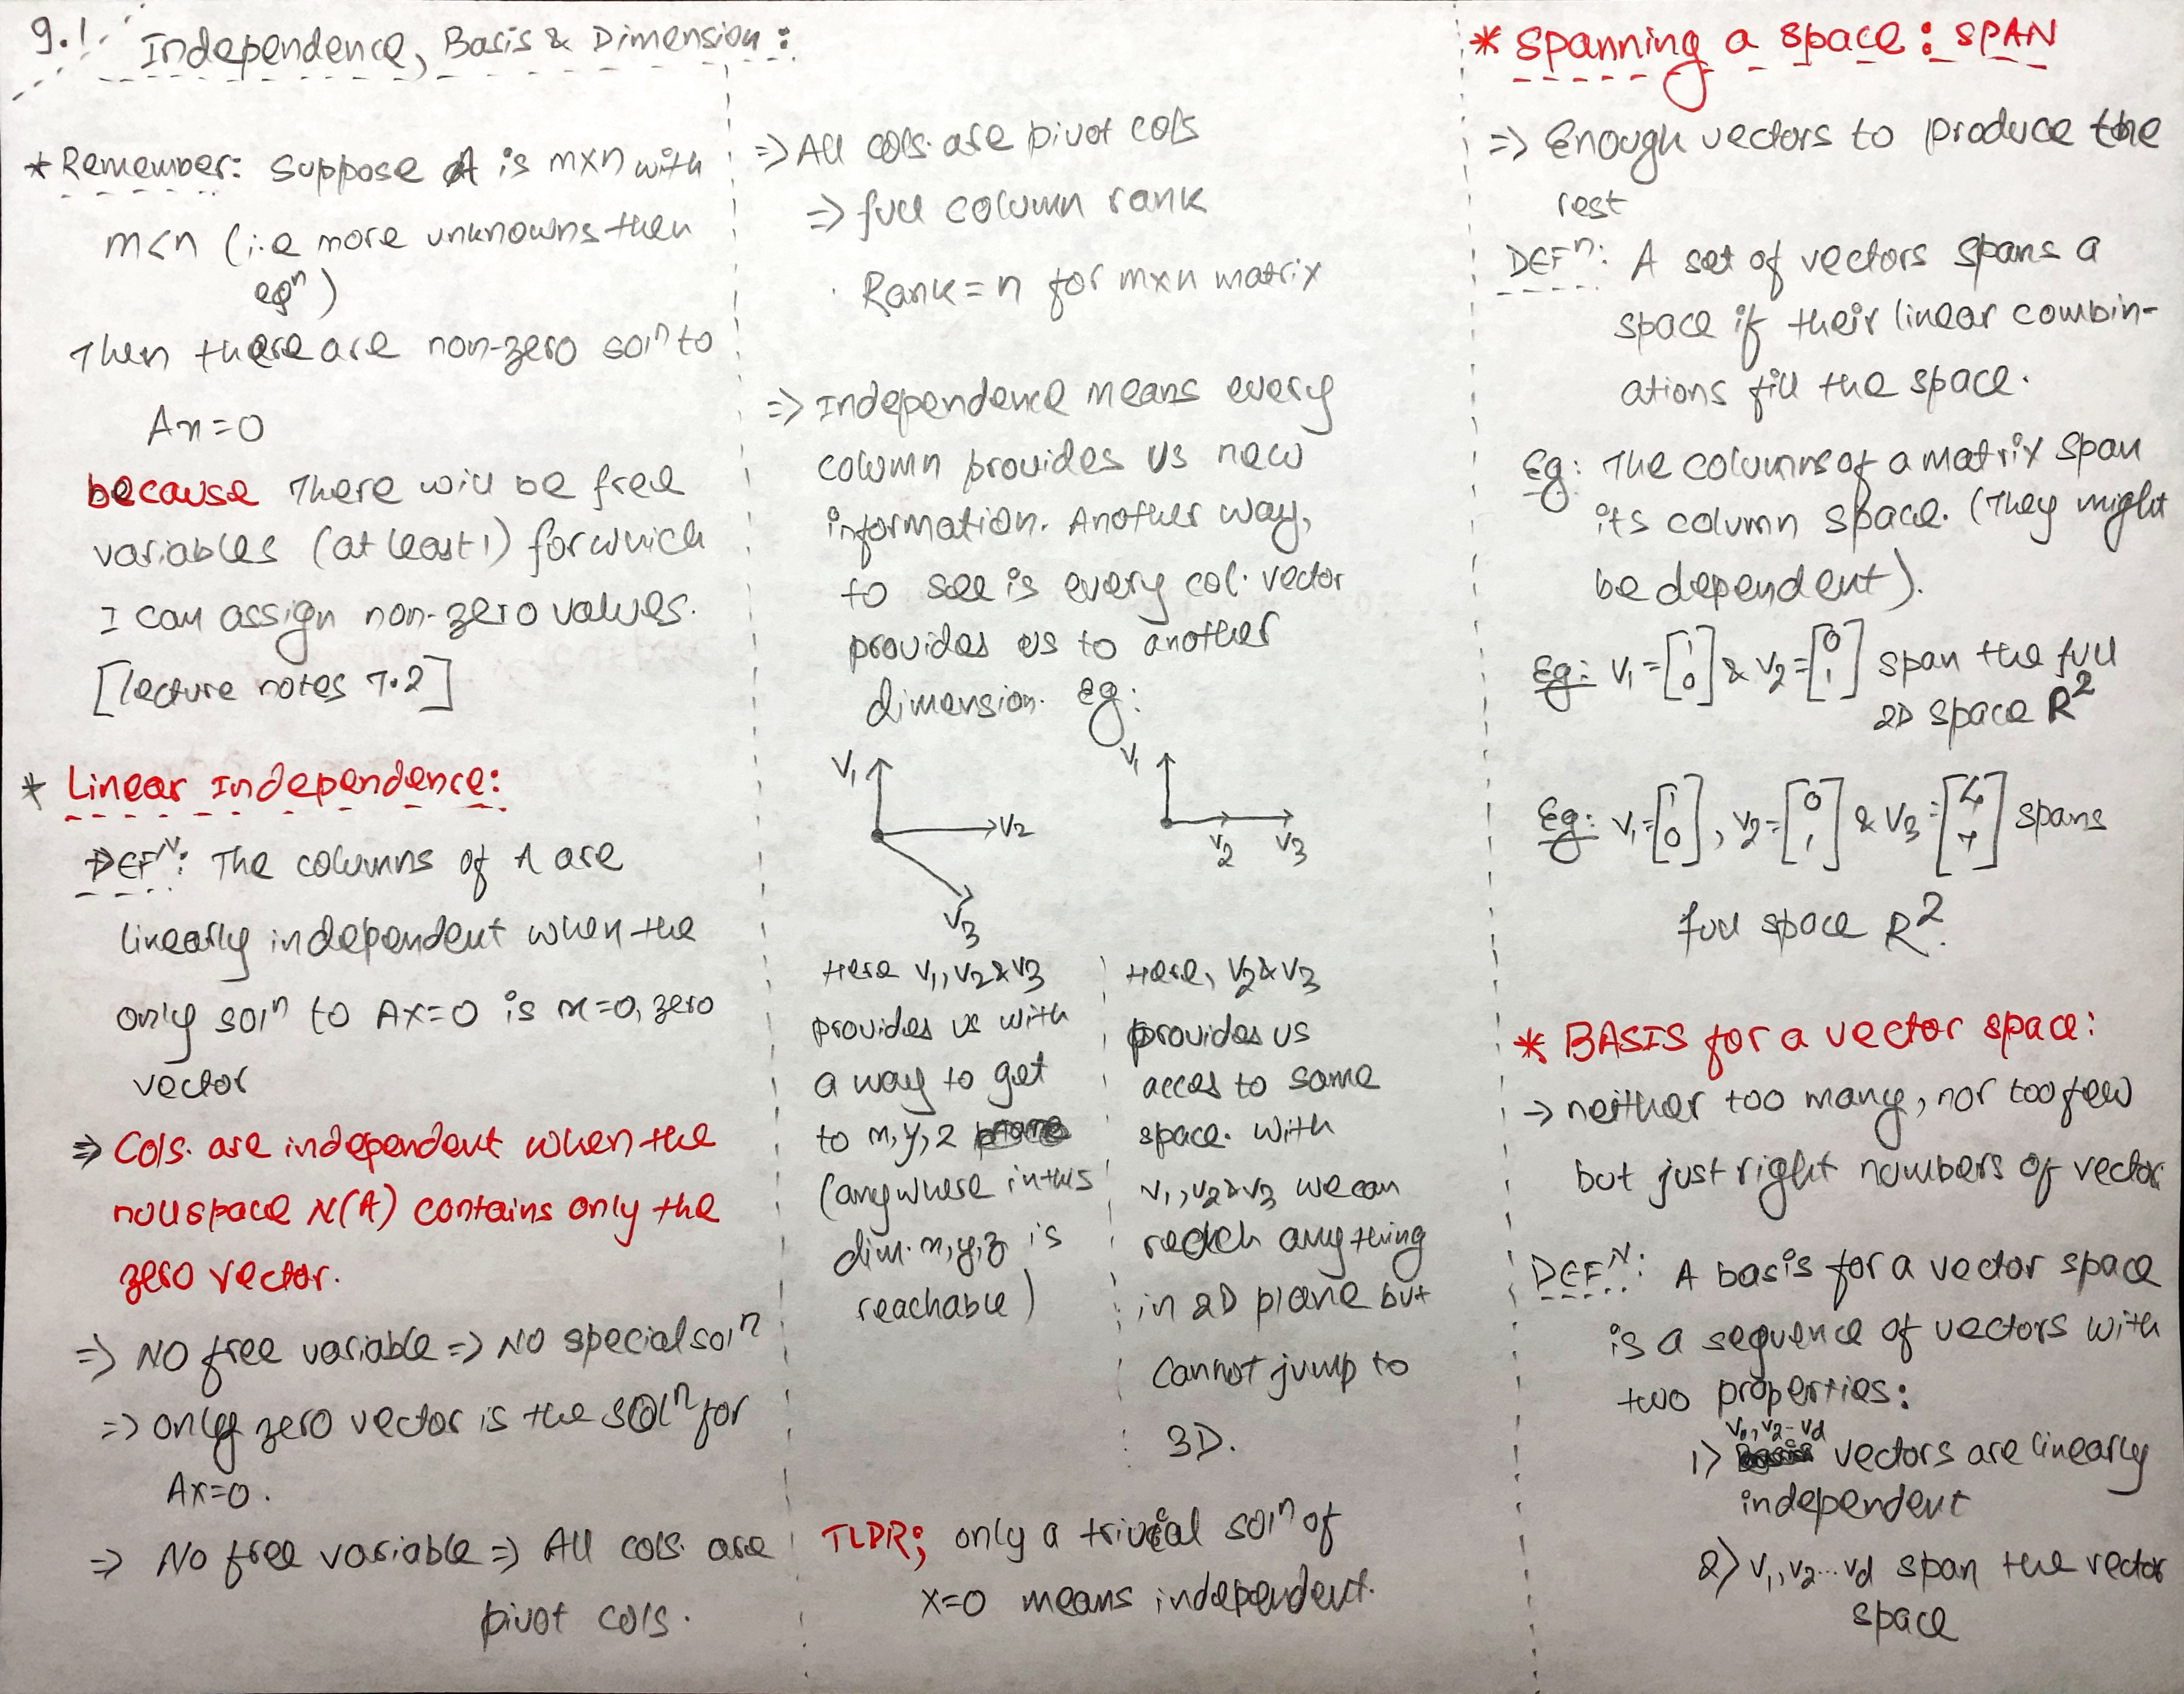 9.1 Independence, Basis & Dimension:
* Remember: Suppose A is m×n with
m<n (i.e more unknowns then
eqⁿ)
Then there are non-zero solⁿ to
Ax=0
because There will be free
variables (at least 1) for which
I can assign non-zero values.
[lecture notes 7.2]
* Linear Independence:
DEFᴺ: The columns of A are
linearly independent when the
only solⁿ to Ax=0 is x=0, zero
vector
⇒ Cols. are independent when the
nullspace N(A) contains only the
zero vector.
⇒ NO free variable ⇒ NO special solⁿ
⇒ only zero vector is the solⁿ for
Ax=0.
⇒ No free variable ⇒ All cols. are
pivot cols.
⇒ All cols. are pivot cols
⇒ full column rank
Rank = n for m×n matrix
⇒ Independence means every
column provides us new
information. Another way,
to see is every col. vector
provides us to another
dimension. Eg:
V₁
V₂
V₃
V₁
V₂
V₃
Here V₁, V₂ & V₃
provides us with
a way to get
to x, y, z
(anywhere in this
dim. x, y, z is
reachable)
Here, V₂ & V₃
provides us
acces to same
space. With
V₁, V₂ & V₃ we can
reach anything
in 2D plane but
cannot jump to
3D.
TLDR; only a trivial solⁿ of
x=0 means independent.
* Spanning a space: SPAN
⇒ Enough vectors to produce the
rest
DEFⁿ: A set of vectors spans a
space if their linear combin-
ations fill the space.
Eg: The columns of a matrix span
its column space. (They might
be dependent).
Eg: V₁ = [1 0] & V₂ = [0 1] span the full
2D space R²
Eg: V₁ = [1 0], V₂ = [0 1] & V₃ = [4 7] spans
full space R².
* BASIS for a vector space:
→ neither too many, nor too few
but just right numbers of vector
DEFᴺ: A basis for a vector space
is a sequence of vectors with
two properties:
V₁, V₂ - Vd
1) vectors are linearly
independent
2) V₁, V₂... Vd span the vector
space